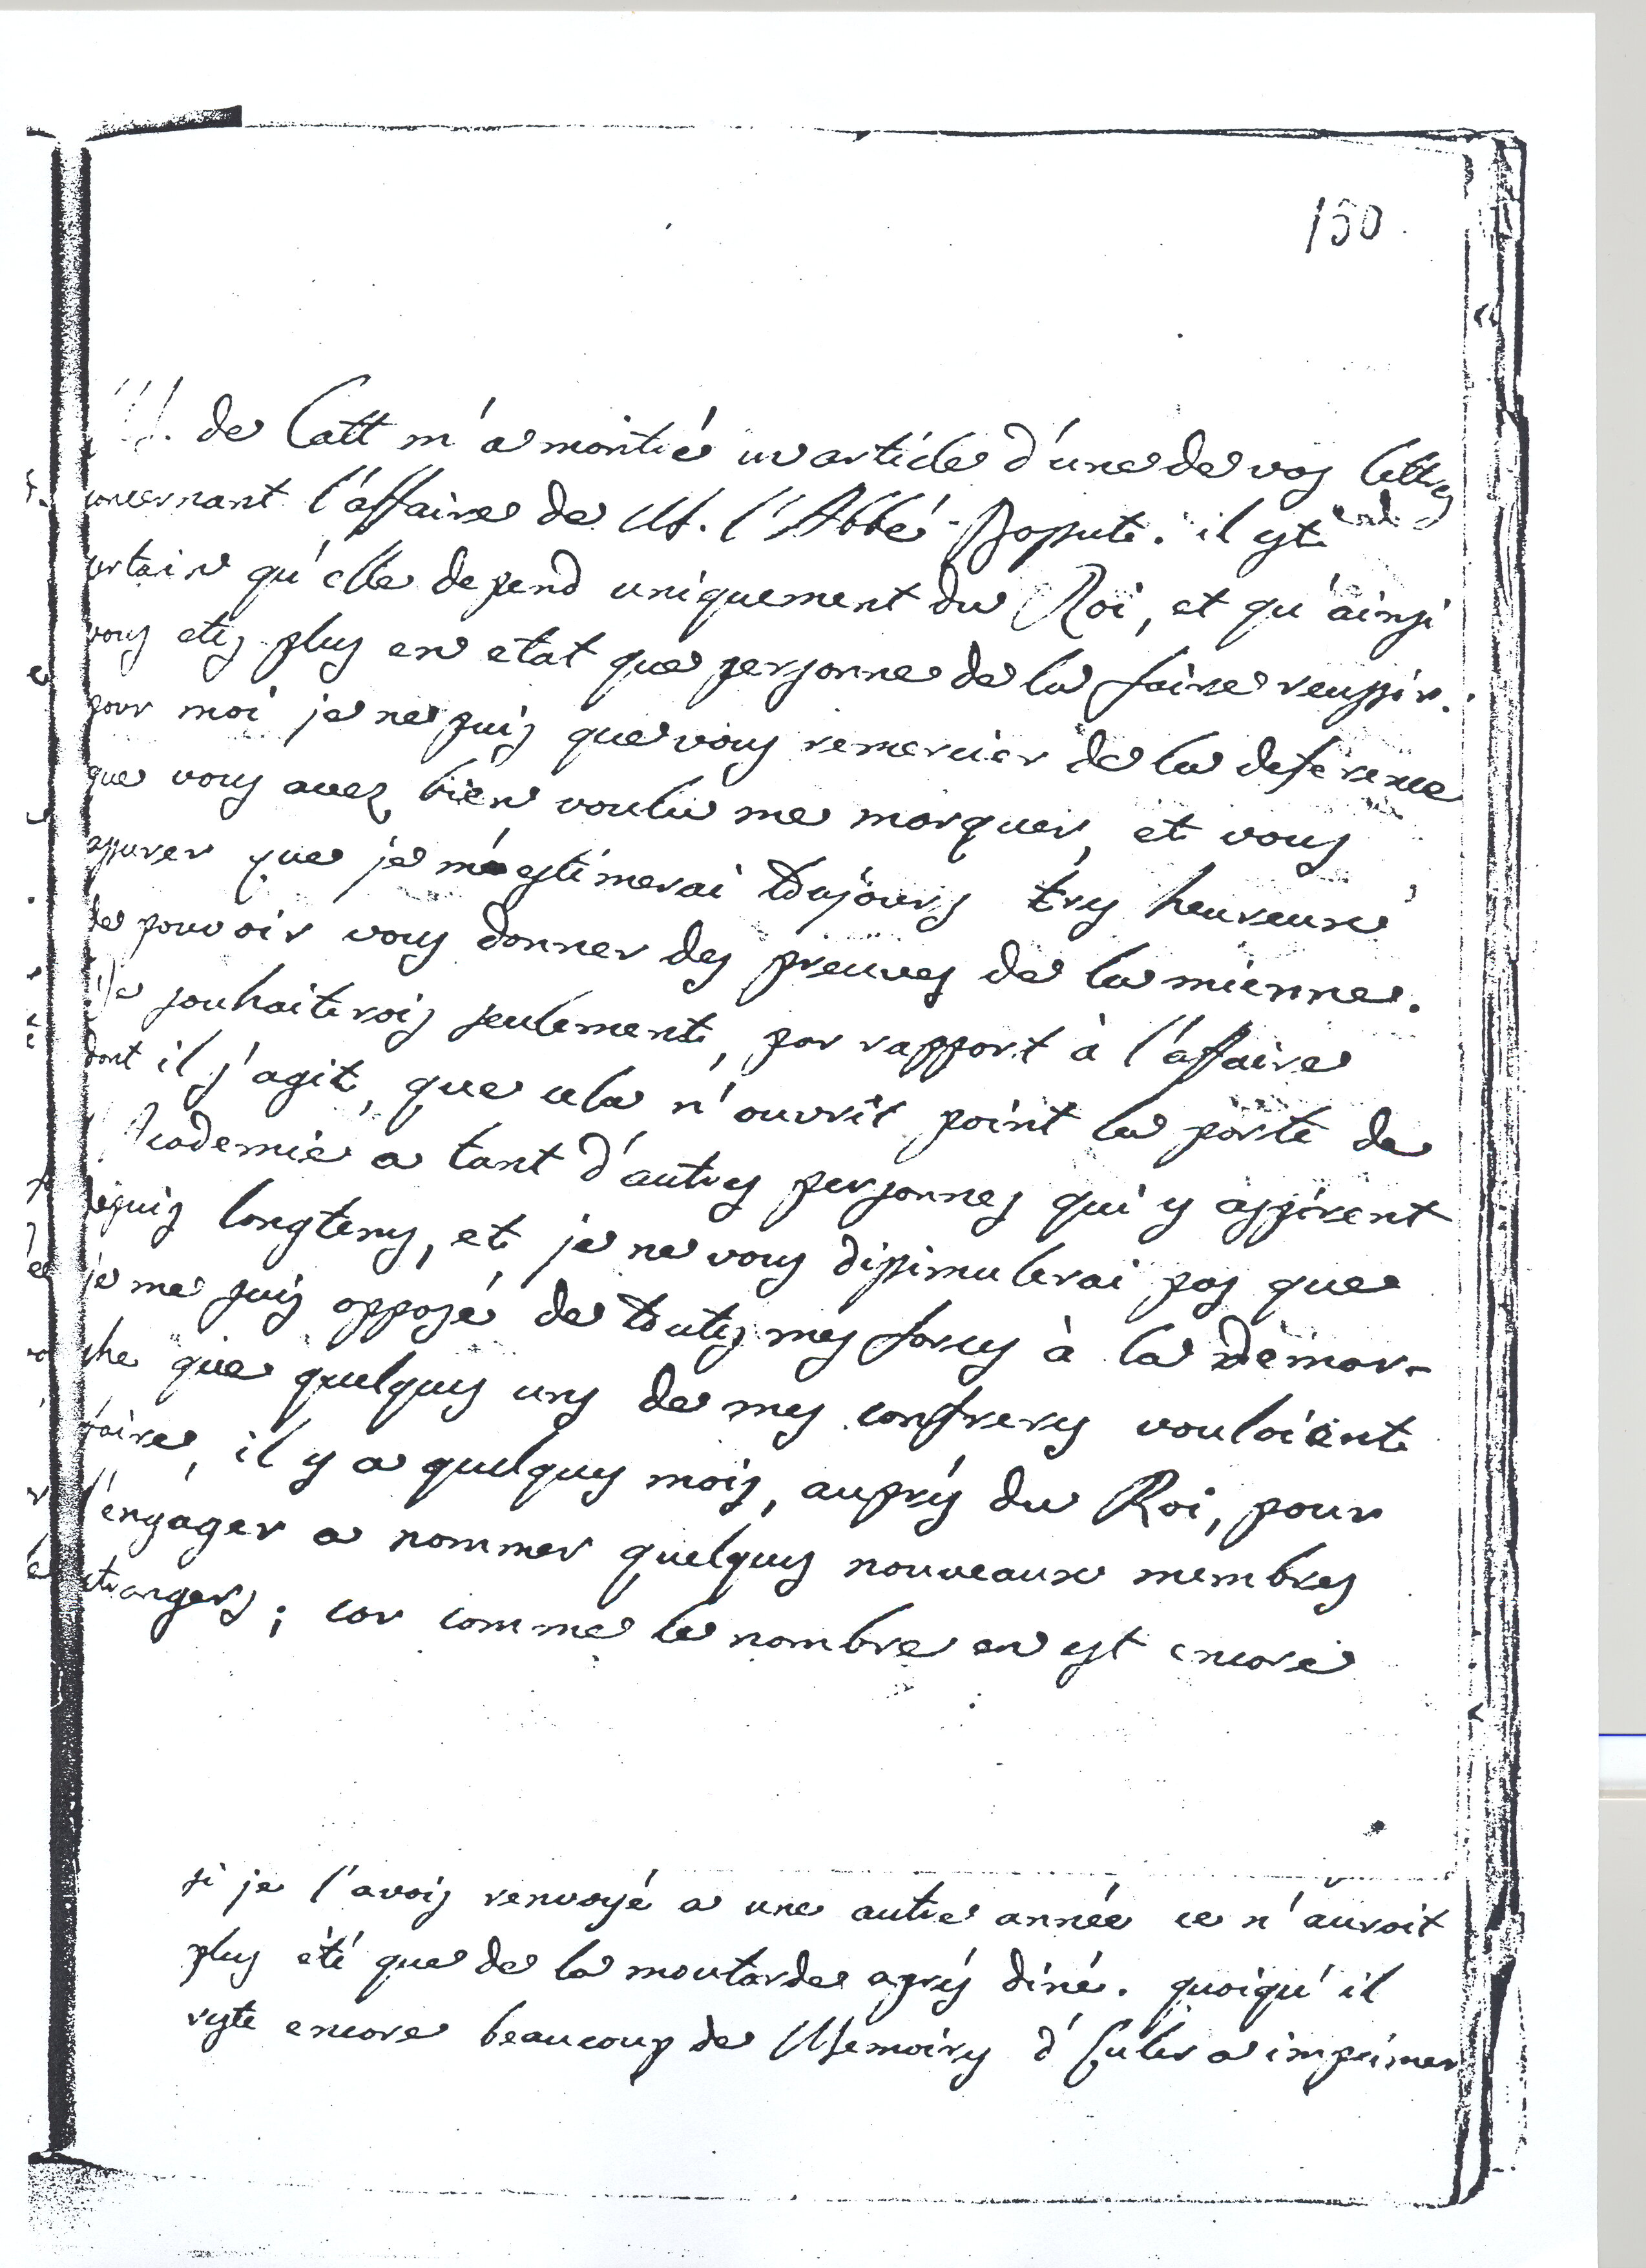 150.
M. de Catt m'a montré un article d'une de vos lettres
concernant l'affaire de M. l'Abbé Bossut. il est
certain qu'elle depend uniquement du Roi, et qu'ainsi
vous etes plus en etat que personne de la faire reussir.
pour moi je ne puis que vous remercier de la deference
que vous avez bien voulu me marquer, et vous
assurer que je m'estimerai toujours très heureux
de pouvoir vous donner des preuves de la mienne.
Je souhaiterois seulement, par rapport à l'affaire
dont il s'agit, que cela n'ouvrit point la porte de
l'Academie a tant d'autres personnes qui y aspirent
depuis longtems, et je ne vous dissimulerai pas que
je me suis opposé de toutes mes forces à la démar-
che que quelques uns de mes confreres vouloient
faire, il y a quelques mois, auprès du Roi, pour
l'engager a nommer quelques nouveaux membres
etrangers; car comme le nombre en est encore
si je l'avois renvoyé a une autre année ce n'auroit
plus été que de la moutarde après diné. quoiqu'il
reste encore beaucoup de Memoires d'Euler a imprimer